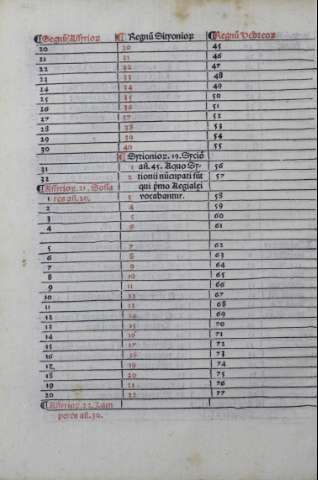 ¶Regnū Assyrioꝝ ¶ Regnū Sicyonioꝝ ¶Regnū Hebreoꝝ
20 20 45
21 21 46
22 22 47
23 23 48
24 24 49
25 25 50
26 26 51
27 27 52
28 28 53
29 29 54
30 30 55
¶Sycionioꝝ. 19. Sycio
31 1 añ. 45. A quo Sy- 56
32 2 cionii nūcupati sūt 57
¶Assyrioꝝ. 21. Sosa qui pͥmo Aegialei
1 res añ. 20. 3 vocabantur. 58
2 4 59
3 5 60
4 6 61
5 7 62
6 8 63
7 9 64
8 10 65
9 11 66
10 12 67
11 13 68
12 14 69
13 15 70
14 16 71
15 17 72
16 18 73
17 19 74
18 20 75
19 21 76
20 22 77
¶Assyrioꝝ. 22. Lam
peres añ. 30.